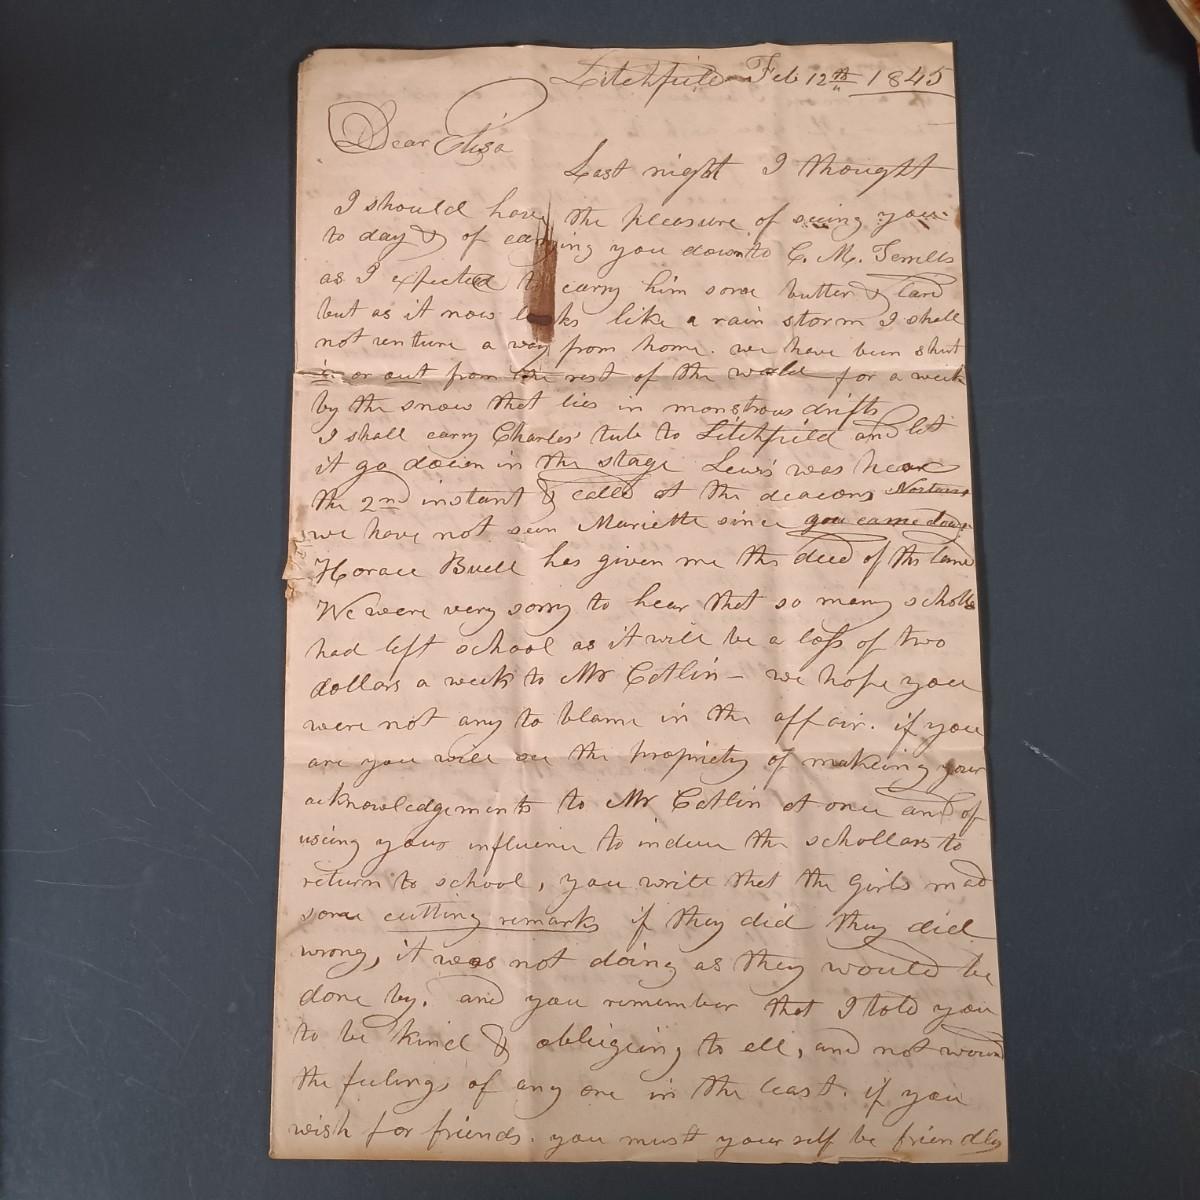 Litchfield Feb 12th 1845
Dear Eliza
Last night I thought
I should have the pleasure of seeing you
to day & of carrying you down to C. M. Terrells
as I expected to carry him some butter & lard
but as it now looks like a rain storm I shall
not venture a way from home. we have been shut
in or out from the rest of the world for a week
by the snow that lies in monstrous drifts
I shall carry Charles' tub to Litchfield and let
it go down in the stage Lewis was hear
the 2nd instant & called at the deacons
we have not seen Mariette since you came down
Horace Buell has given me the deed of the land
We were very sorry to hear that so many schollars
had left school as it will be a loss of two
dollars a week to Mr Catlin – we hope you
were not any to blame in the affair. if you
are you will see the propriety of makeing your
acknowledgements to Mr Catlin at once and of
using your influence to induce the schollars to
return to school, you write that the girls mad
some cutting remarks if they did they did
wrong, it was not doing as they would be
done by. and you remember that I told you
to be kind & obligeing to all, and not wound
the feelings of any one in the least. if you
wish for friends. you must your self be friendly